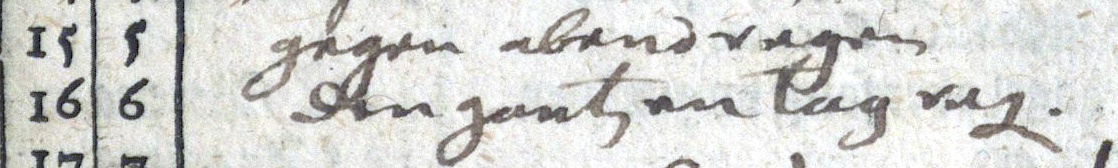 15 5 gegen abend regen
16 6 den gantzen tag reg.
17 7